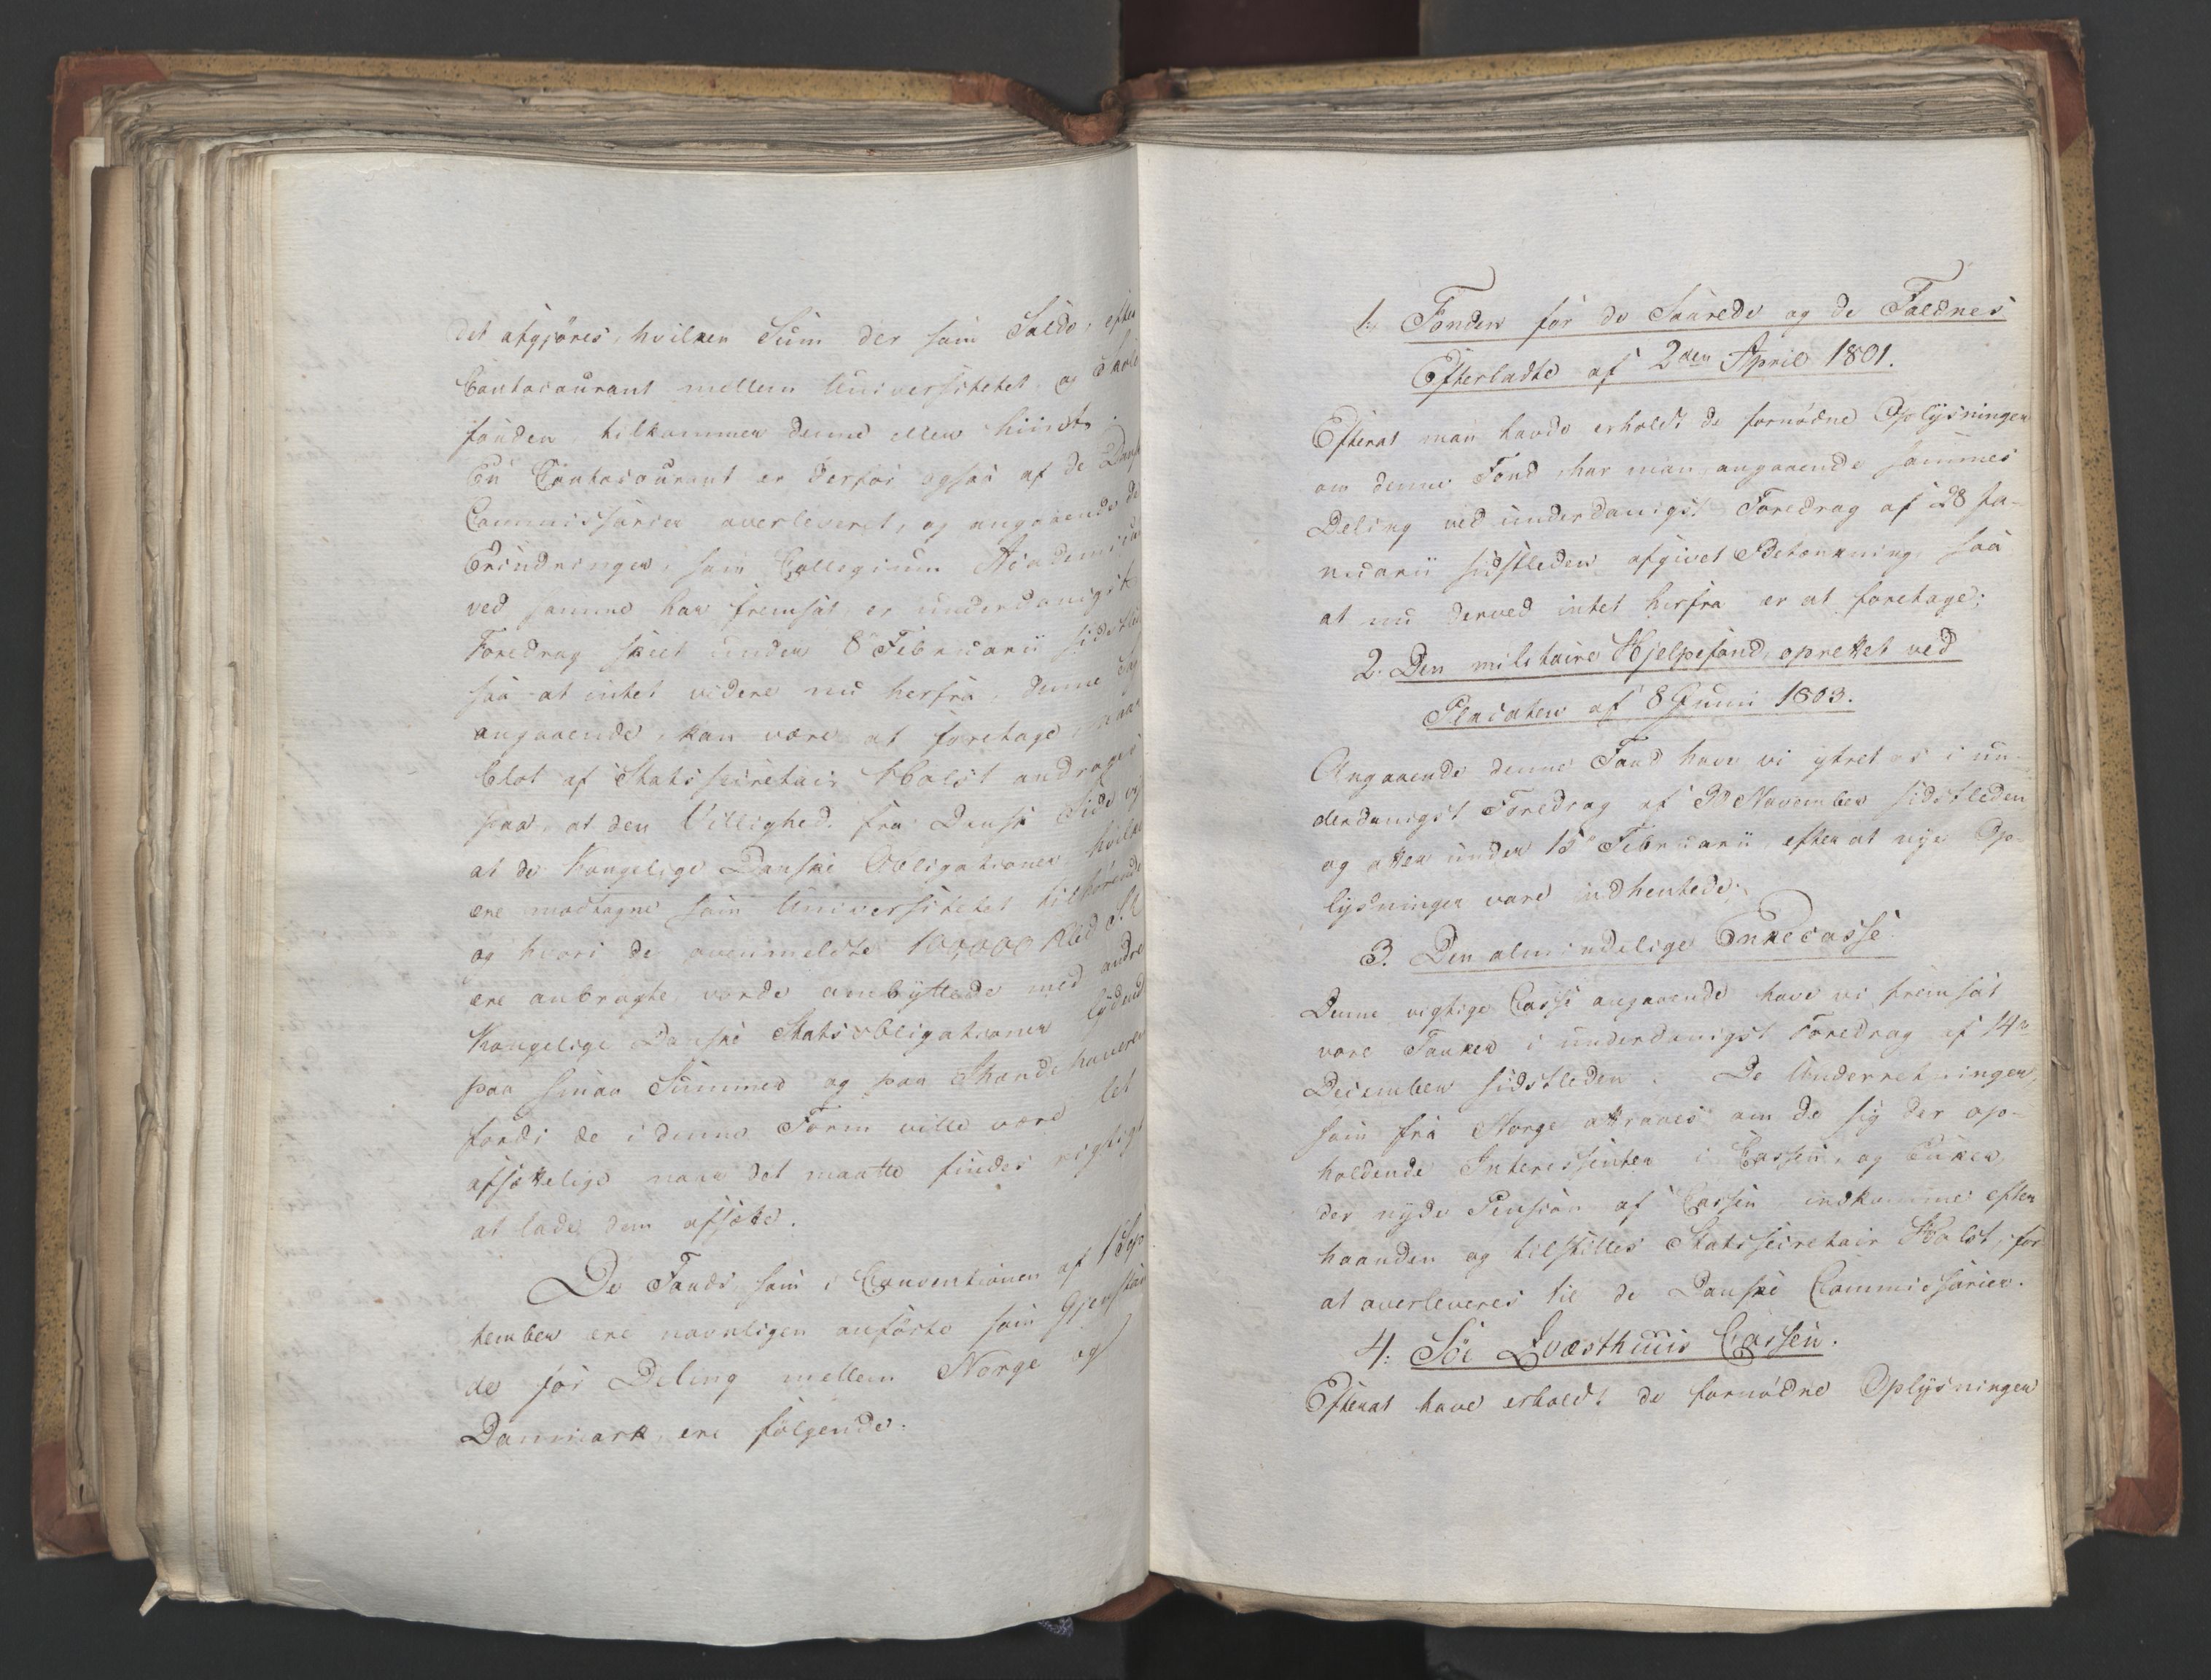 det afgjøres, hvilken Sum der som Saldo, efter
Contocourant mellem Universitetet og
fonden tilkommer denne eller hiint.
En Contocourant er derfor ogsaa af de Danske
Commissarier overleveret, og angaaende de
Erindringer, som Collegium Academicum
ved samme har fremsat er underdanigst
Foredrag skeet under 8de Februarii sidstleden
saa at intet videre nu herfra, denne Sag
angaaende, kan være at foretage, naar
blot af Statssecretair Holst andrages
paa, at den Villighed fra Dansk Side vises
at de Kongelige Danske Obligationer, hvilke
ere modtagne som Universitetet tilhørende
og hvori de ovenmeldte 100,000 Rbd S.V.
ere anbragte, vorde ombyttede med andre
Kongelige Danske Statsobligationer lydende
paa smaa Summer og paa Ihændehaveren
fordi de i denne Form ville være let
afsættelige naar det maatte findes rigtigt
at lade dem afsætte.
De Fonds, som i Conventionen af 1 Sep-
tember ere navnligen anførte som Gjenstan-
de for Deling mellem Norge og
Danmark, ere følgende.
1. Fonden for de Saarede og de Faldnes
Efterladte af 2den April 1801.
Efterat man havde erholdt de fornødne Oplysninger
om denne Fond, har man angaaende sammes
Deling ved underdanigst Foredrag af 28 Ja-
nuarii sidstleden afgivet Betænkning, saa
at nu derved intet herfra er at foretage;
2. Den militaire Hjelpefond, oprettet ved
Placaten af 8 Juni 1803.
Angaaende denne Fond have vi ytret os i un-
derdanigst Foredrag af 30 November sidstleden
og atter under 15de Februarii, efterat nye Op-
lysninger vare indhentede;
3. Den almindelige Enkecasse.
Denne vigtige Casse angaaende have vi fremsat
vore Tanker i underdanigst Foredrag af 14de
December sidstleden. De Underretninger,
som fra Norge attraaes om de sig der op-
holdende Interessenter i Cassen, og Enker,
der nyde Pension af Cassen indkomme efter
haanden og tilstilles Statssecretair Holst, for
at overleveres til de Danske Commissarier.
4. Søe Qvæsthuus Cassen.
Efterat have erholdt de fornødne Oplysninger